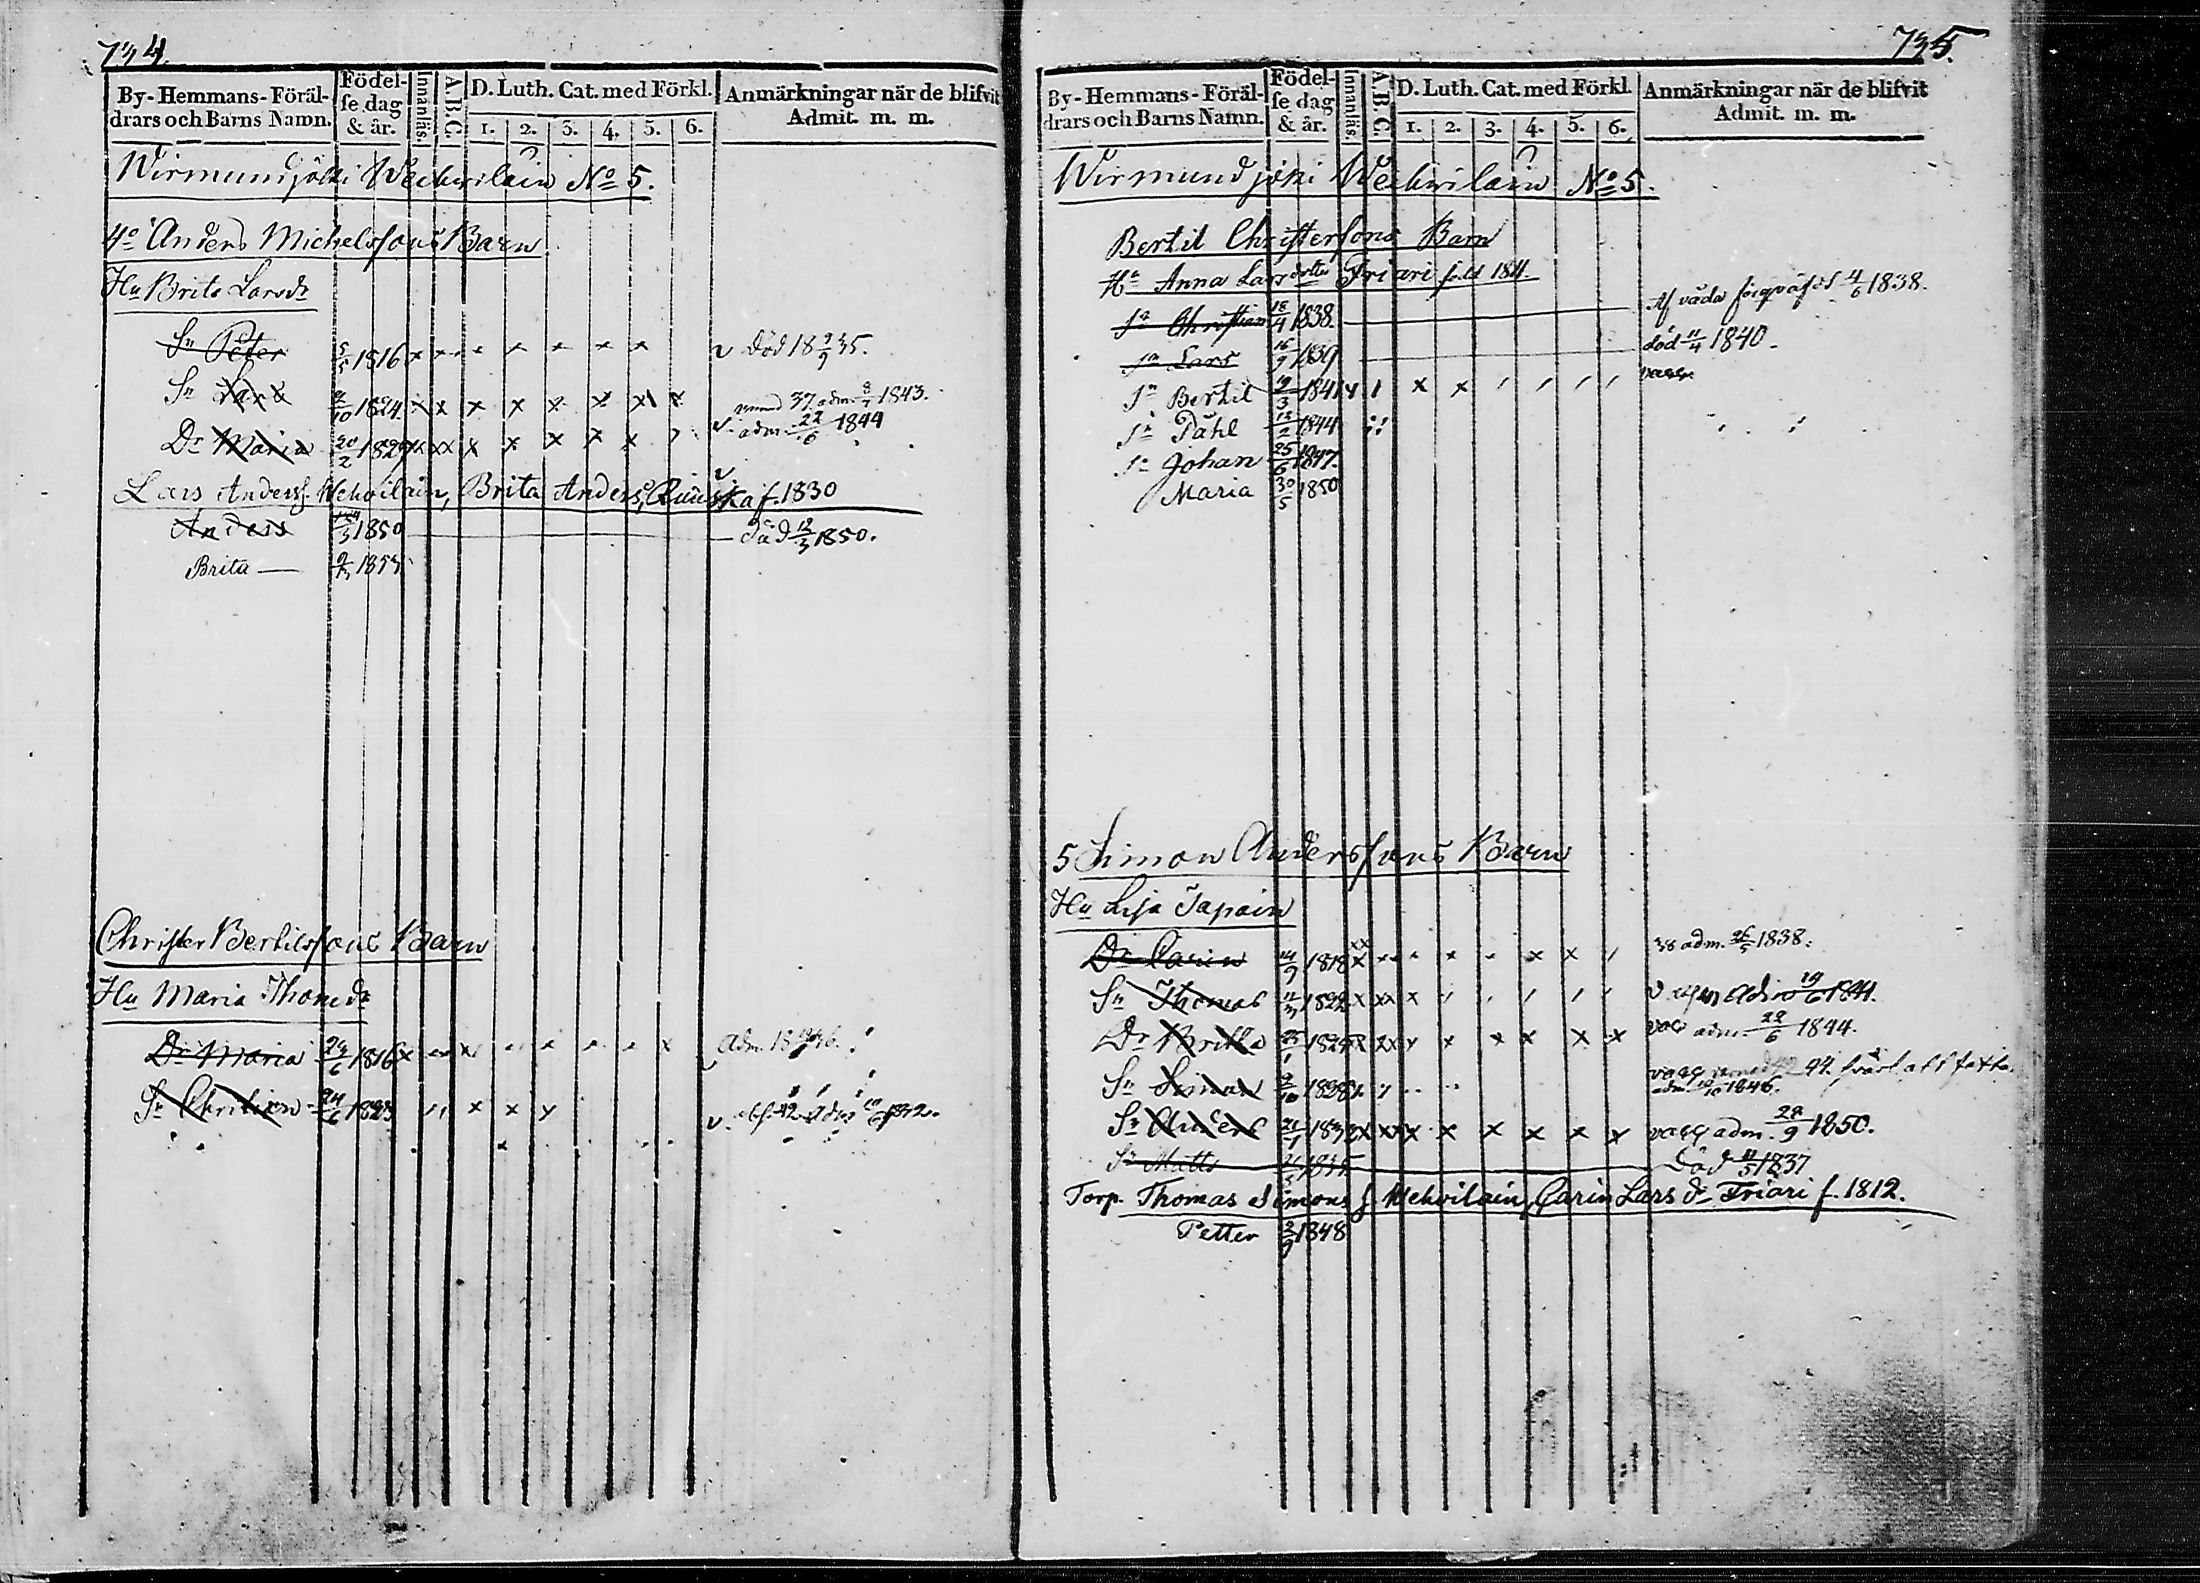 734.
By-Hemmans-Föräl-
drars och Barns Namn.
Födel-
se dag
& år.
Innanläs.
A.B.C.
D. Luth. Cat. med Förkl.
1. 2. 3. 4. 5. 6.
Anmärkningar när de blifvit
Admit. m. m.
Wirmundjöki Wehvilain No 5.
4o Anders Michelssons Barn
Hu Brita Larsdr
Sn Peter 5/5 1816 x x x x x x död 18 9/9 35.
Sn Lars 9/10 1824 x x x x x x x x 37. adm. 1843.
Dr Maria 20/2 1829 x x x x x x x x adm. 22/6 1844
Lars Anderss. Wehvilain, Brita Andersd. Ruuska f. 1830
Anders 1850 död 12/3 1850.
Brita
Christer Bertilssons Barn
Hu Maria Thomsdr
Dr Maria 1816 x Adm.
Sn Christian 24/6 1823 x x x
735.
By-Hemmans-Föräl-
drars och Barns Namn.
Födel-
se dag
& år.
Innanläs.
A.B.C.
D. Luth. Cat. med Förkl.
1. 2. 3. 4. 5. 6.
Anmärkningar när de blifvit
Admit. m. m.
Wirmundjoki Wehvilain No 5.
Bertil Christersons Barn
Hu Anna Larsdotter Friari född 1811.
Sn Christian 18/4 1838. Af våda 4/6 1838.
Sn Lars 16/9 1839 död 11/4 1840.
Sn Bertil 19/3 1841 x x
Sn Påhl 12/2 1844
Sn Johan 25/6 1847.
Maria 30/5 1850
5 Simon Anderssons Barn
Hu Lisa Tapain
Dr Carin 14/9 1818 x x x x 38 adm. 26/5 1838.
Sn Thomas 11/3 1822 x xx x
Dr Britta 25/1 1825 x x x x x x adm. 22/6 1844.
Sn Simon 9/10 1828 svårt att fatta.
adm. 1846.
Sn Anders 1832 x xx x x x x x x adm. 28/9 1850.
Sn Matts 1835 Död 11/5 1837
Torp. Thomas Simons S. Wehvilain, Carin Lars dr Friari f. 1812.
Petter 2/9 1848